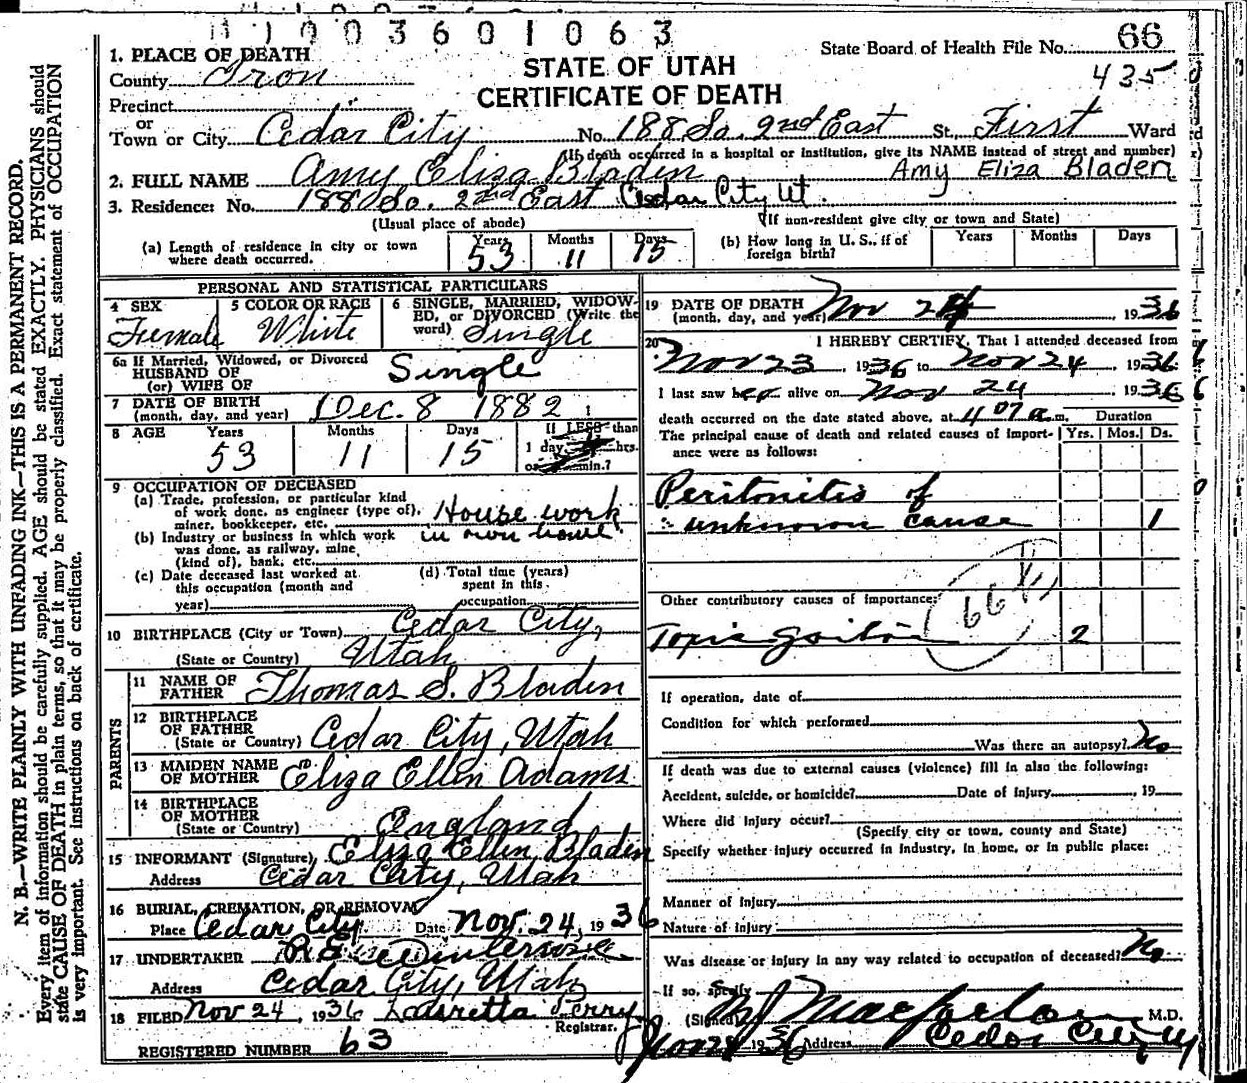 11003601063
State Board of Health File No. 66
435
STATE OF UTAH
CERTIFICATE OF DEATH
1. PLACE OF DEATH
County Iron
Precinct
or
Town or City Cedar City No. 188 So. 2nd East St. First Ward
(If death occurred in a hospital or institution, give its NAME instead of street and number)
2. FULL NAME Amy Eliza Bladen Amy Eliza Bladen
3. Residence: No. 188 So. 2nd East Cedar City Ut.
(Usual place of abode) (If non-resident give city or town and State)
(a) Length of residence in city or town where death occurred. Years 53 Months 11 Days 15
(b) How long in U. S., if of foreign birth? Years Months Days
PERSONAL AND STATISTICAL PARTICULARS
4 SEX Female
5 COLOR OR RACE White
6 SINGLE, MARRIED, WIDOWED, or DIVORCED (Write the word) Single
6a If Married, Widowed, or Divorced
HUSBAND OF
(or) WIFE OF Single
7 DATE OF BIRTH
(month, day, and year) Dec. 8 1882
8 AGE Years 53 Months 11 Days 15 If LESS than 1 day hrs. or min.?
9 OCCUPATION OF DECEASED
(a) Trade, profession, or particular kind
of work done, as engineer (type of),
miner, bookkeeper, etc. House work
(b) Industry or business in which work
was done, as railway, mine,
(kind of), bank, etc. in own house
(c) Date deceased last worked at
this occupation (month and
year)
(d) Total time (years)
spent in this
occupation
10 BIRTHPLACE (City or Town) Cedar City,
(State or Country) Utah
PARENTS
11 NAME OF
FATHER Thomas S. Bladen
12 BIRTHPLACE
OF FATHER
(State or Country) Cedar City, Utah
13 MAIDEN NAME
OF MOTHER Eliza Ellen Adams
14 BIRTHPLACE
OF MOTHER
(State or Country) England
15 INFORMANT (Signature) Eliza Ellen Bladen
Address Cedar City, Utah
16 BURIAL, CREMATION, OR REMOVAL
Place Cedar City Date Nov. 24, 1936
17 UNDERTAKER
Address Cedar City, Utah
18 FILED Nov 24, 1936 Perry
Registrar.
REGISTERED NUMBER 63
19 DATE OF DEATH
(month, day, and year) Nov 24 1936
20 I HEREBY CERTIFY, That I attended deceased from
Nov 23, 1936 to Nov 24, 1936
I last saw her alive on Nov 24 1936
death occurred on the date stated above, at 4 07 a.m. Duration
The principal cause of death and related causes of importance were as follows: Yrs. Mos. Ds.
Peritonitis of
unknown cause 1
Other contributory causes of importance:
Toxic Goiter 2
66
If operation, date of
Condition for which performed
Was there an autopsy? No
If death was due to external causes (violence) fill in also the following:
Accident, suicide, or homicide? Date of injury, 19
Where did injury occur?
(Specify city or town, county and State)
Specify whether injury occurred in industry, in home, or in public place:
Manner of injury
Nature of injury
Was disease or injury in any way related to occupation of deceased? No
If so, specify
(Signed) Macfarlane M.D.
1936 Address Cedar City
N. B.—WRITE PLAINLY WITH UNFADING INK—THIS IS A PERMANENT RECORD.
Every item of information should be carefully supplied. AGE should be stated EXACTLY. PHYSICIANS should
state CAUSE OF DEATH in plain terms, so that it may be properly classified. Exact statement of OCCUPATION
is very important. See instructions on back of certificate.